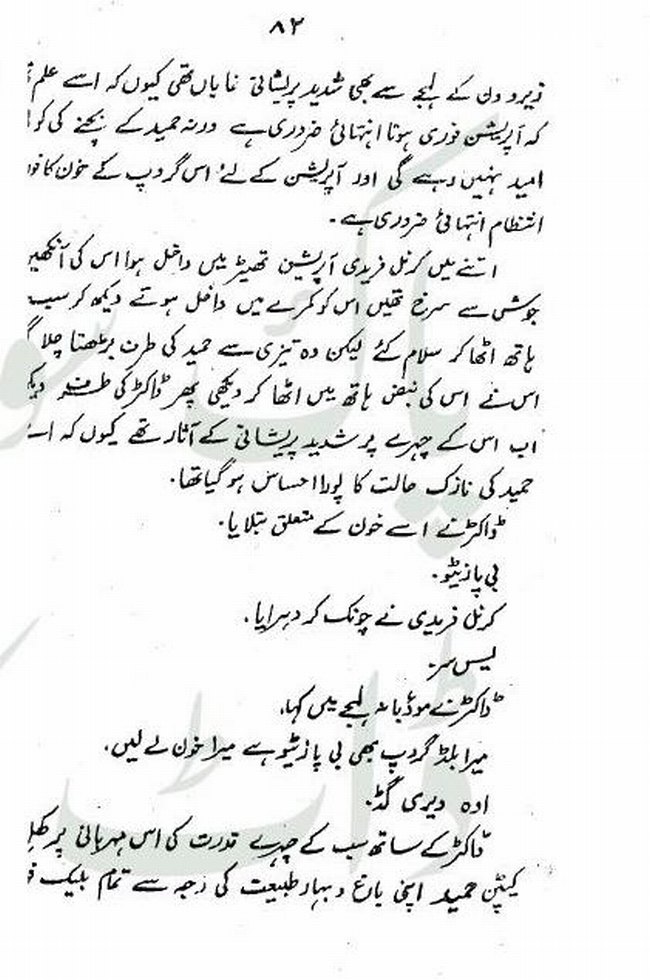 ۸۲
زیرو ون کے لہجے سے بھی شدید پریشانی نمایاں تھی کیوں کہ اسے علم
کہ آپریشن فوری ہونا انتہائی ضروری ہے ورنہ حمید کے بچنے کی کو
امید نہیں رہے گی اور آپریشن کے لئے اس گروپ کے خون کا فور
انتظام انتہائی ضروری ہے۔
اتنے میں کرنل فریدی آپریشن تھیٹر میں داخل ہوا اس کی آنکھیں
جوش سے سرخ تھیں اس کو کمرے میں داخل ہوتے دیکھ کر سب
ہاتھ اٹھا کر سلام کئے لیکن وہ تیزی سے حمید کی طرف بڑھتا چلا گ
اس نے اس کی نبض ہاتھ میں اٹھا کر دیکھی پھر ڈاکٹر کی طرف دیک
اب اس کے چہرے پر شدید پریشانی کے آثار تھے کیوں کہ اسے
حمید کی نازک حالت کا پورا احساس ہو گیا تھا۔
ڈاکٹر نے اسے خون کے متعلق بتلایا۔
بی پازیٹو۔
کرنل فریدی نے چونک کر دہرایا۔
یس سر۔
ڈاکٹر نے مودبانہ لہجے میں کہا۔
میرا بلڈ گروپ بھی بی پازیٹو ہے میرا خون لے لیں۔
اوہ ویری گڈ۔
ڈاکٹر کے ساتھ سب کے چہرے قدرت کی اس مہربانی پر کھل
کیپٹن حمید اپنی باغ و بہار طبیعت کی وجہ سے تمام بلیک ف